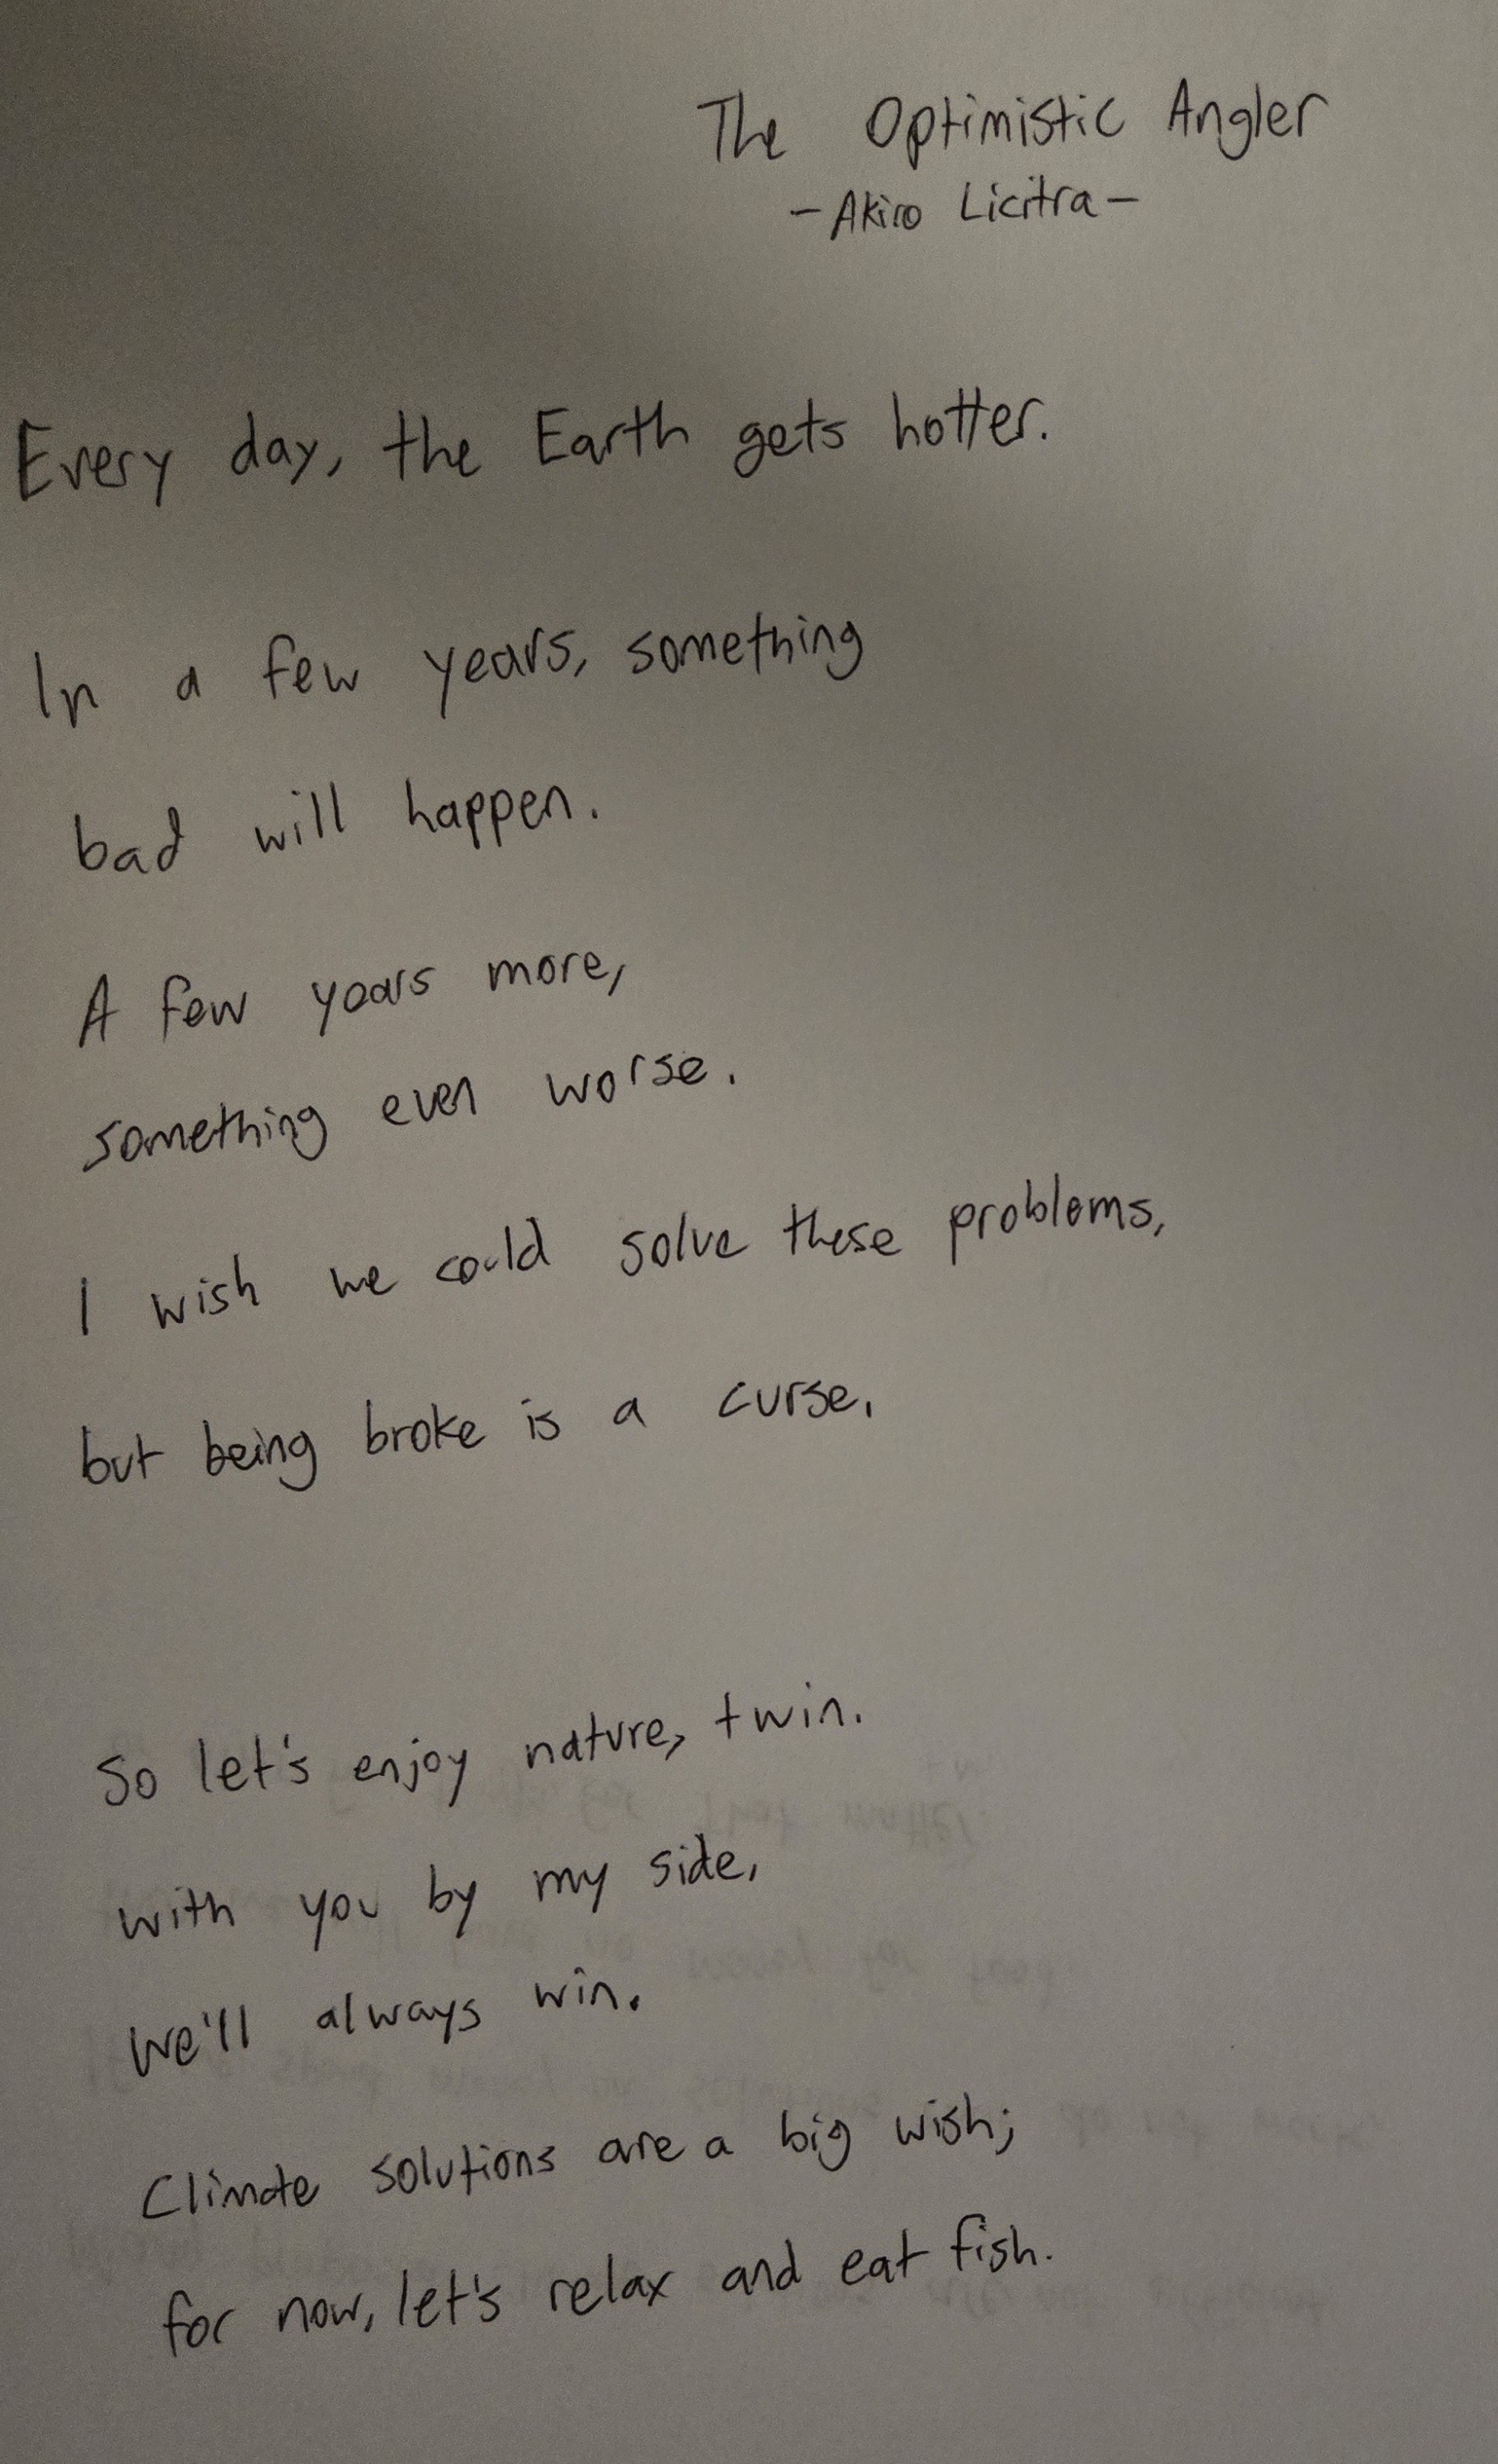 The Optimistic Angler
-Akiro Licitra-
Every day, the Earth gets hotter.
In a few years, something
bad will happen.
A few years more,
something even worse.
I wish we could solve these problems,
but being broke is a curse.
So let's enjoy nature, twin.
with you by my side,
we'll always win.
Climate solutions are a big wish;
for now, let's relax and eat fish.